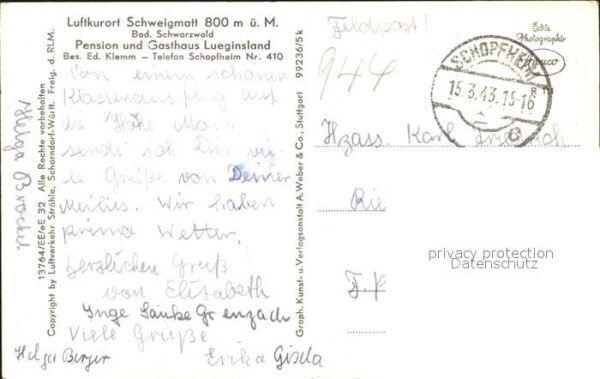 Luftkurort Schweigmatt 800 m ü. M.
Bad. Schwarzwald
Pension und Gasthaus Lueginsland
Bes. Ed. Klemm — Telefon Schopfheim Nr. 410
Von einem schönen
Klassenausflug auf
die Hohe Möhr
sende ich Dir vie-
le Grüße von Deiner
Wir haben
prima Wetter.
Herzlichen Gruß
von Elisabeth
Inge Grenzach
Viele Grüße
Helga Berger
Erika Gisela
Helga
13764/EE/eE 32 Alle Rechte vorbehalten
Copyright by Luftverkehr Strähle, Schorndorf-Württ. Freig. d. RLM.
Graph. Kunst- u. Verlagsanstalt A. Weber & Co., Stuttgart 99236/5k
Feldpost!
944
Echte
Photographie
SCHOPFHEIM
15.3.43.15-16
Karl
privacy protection
Datenschutz